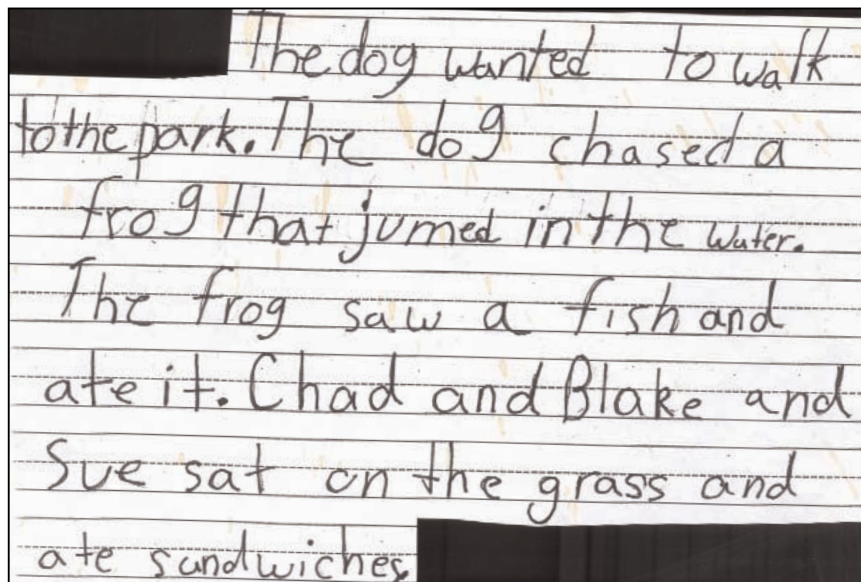 The dog wanted to walk
to the park. The dog chased a
frog that jumed in the water.
The frog saw a fish and
ate it. Chad and Blake and
Sue sat on the grass and
ate sandwiches.